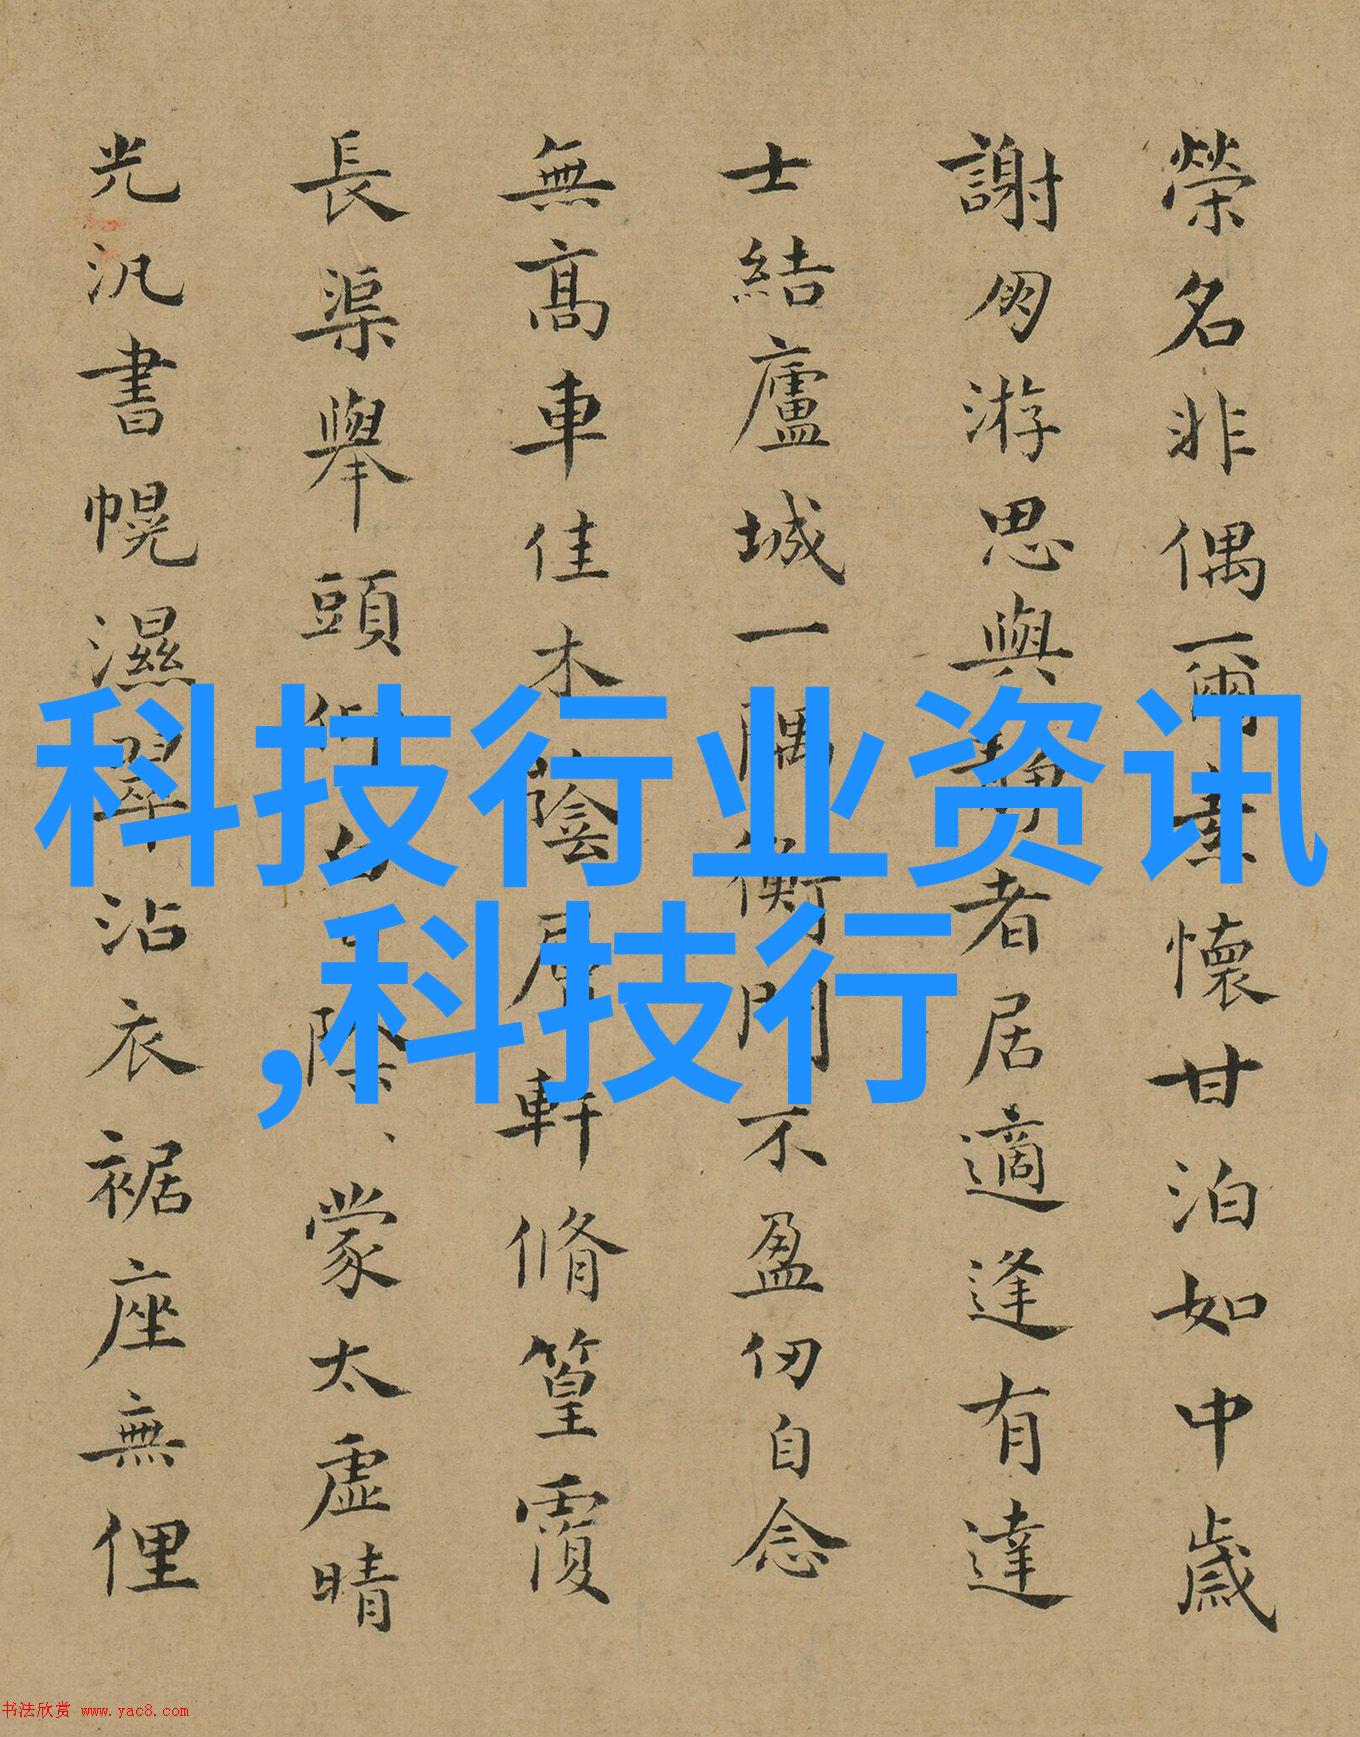 榮名非偶爾素懷甘泊如中歲
謝朋游思與靜者居適逢有達
士結廬城一隅衡門不盈仞自念
無高車佳木蔭屋軒脩篁覆
長渠舉頭 除蒙太虛晴
光汎書幌濕翠沾衣裾座無俚
科技行业资讯
,科技行
书法欣赏 www.yac8.com